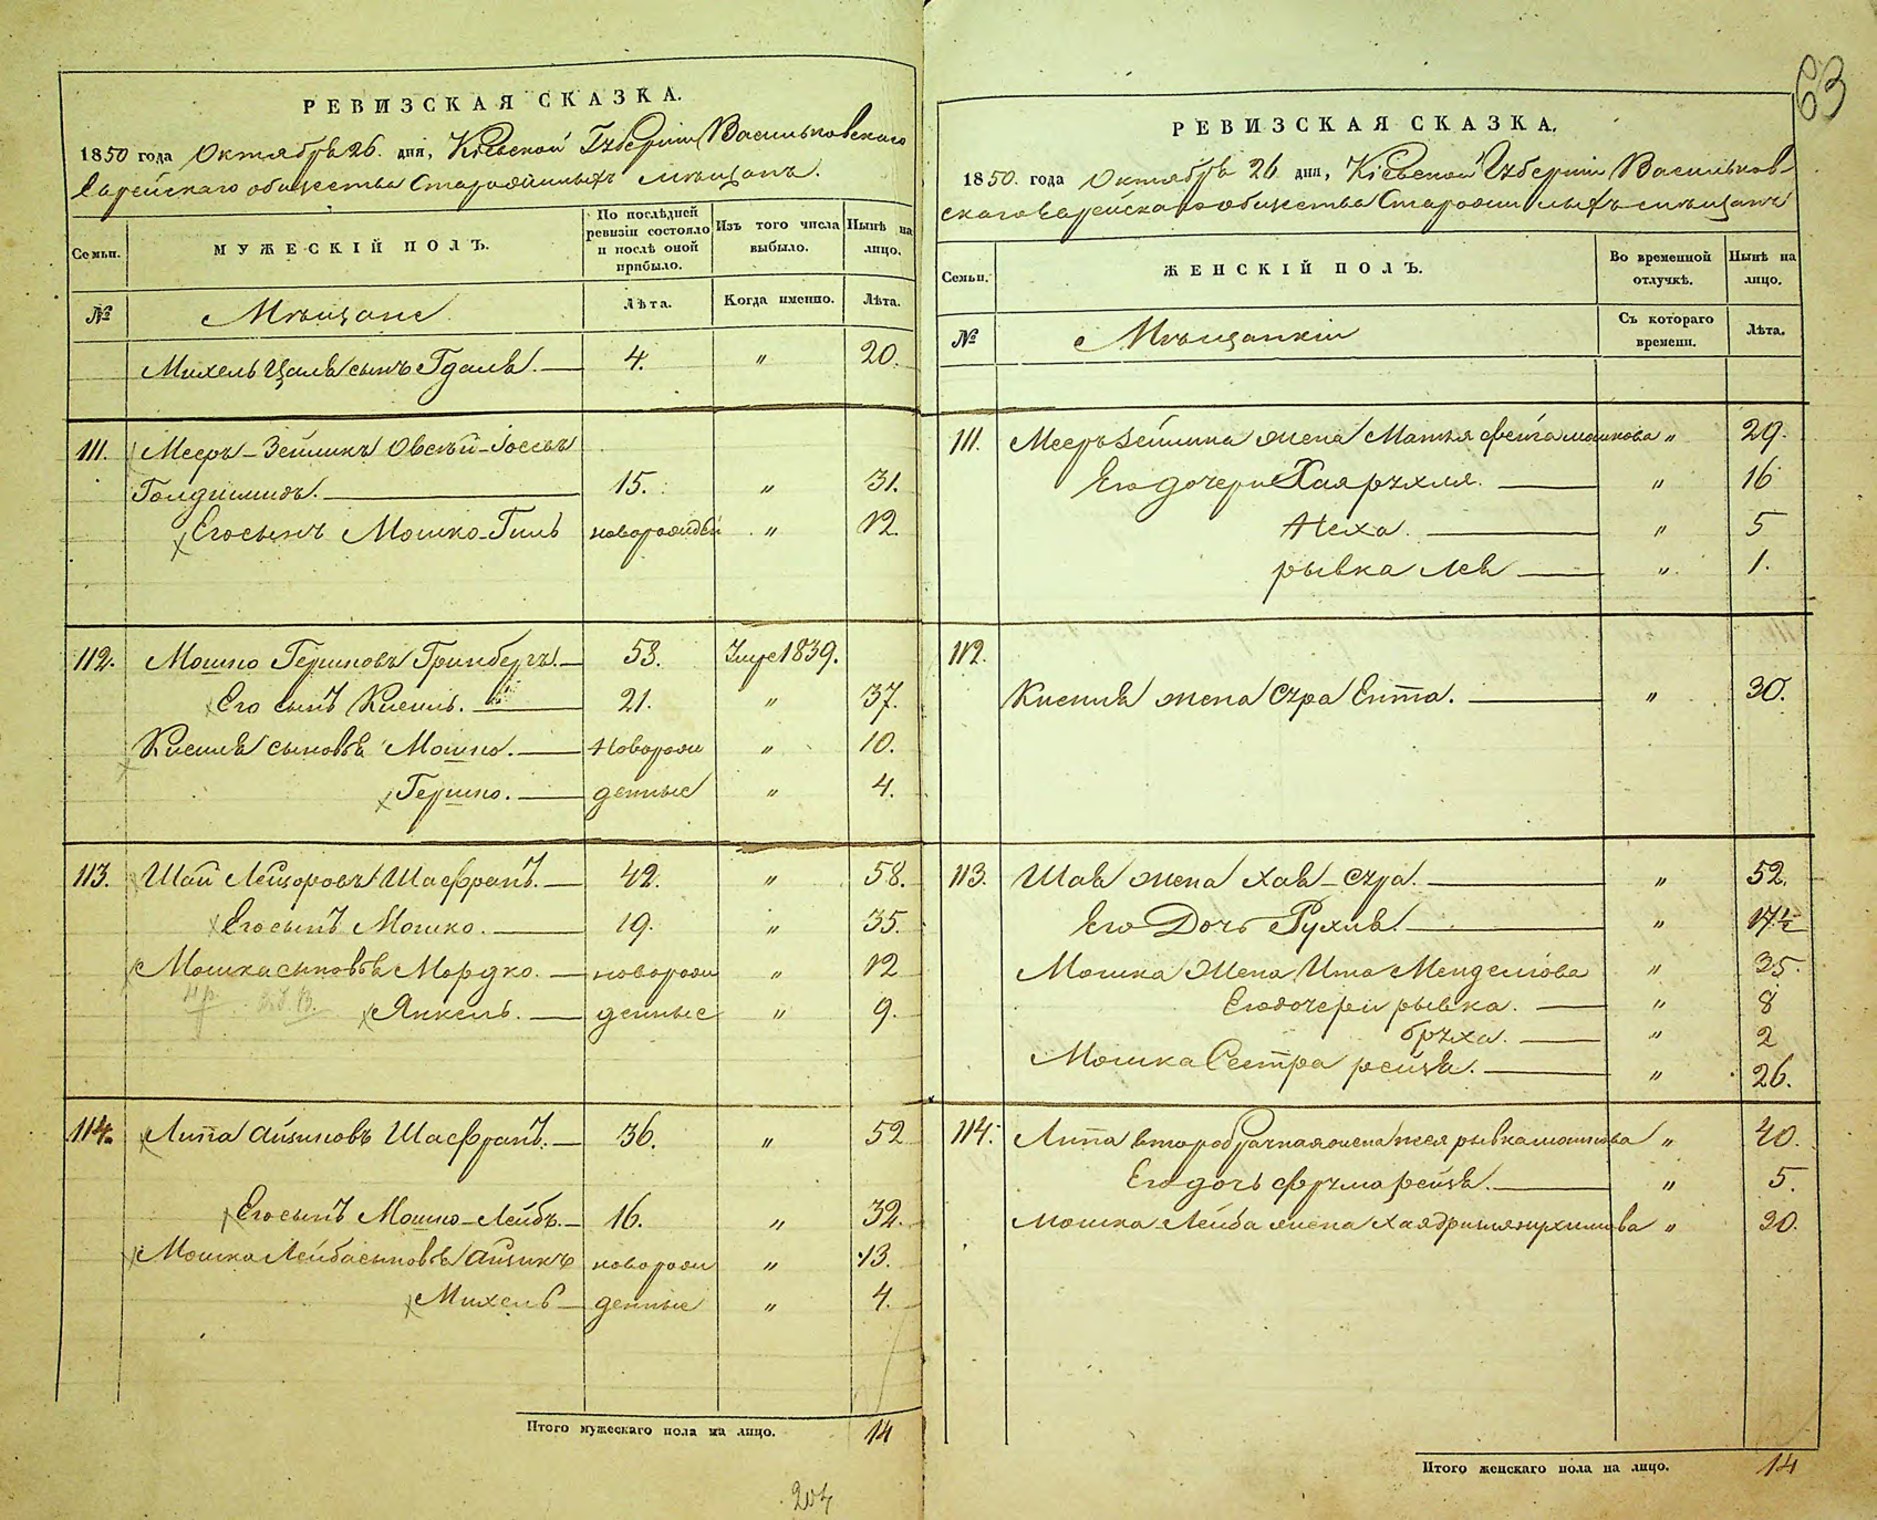 63
РЕВИЗСКАЯ СКАЗКА.
1850 года Октября 26. дня, Кіевской Губерніи Васильковскаго
Еврейскаго общества Старожилыхъ мѣщанъ.
Семьи. МУЖЕСКІЙ ПОЛЪ. По послѣдней ревизіи состояло и послѣ оной прибыло. Изъ того числа выбыло. Нынѣ на лицо.
№ Мѣщане Лѣта. Когда именно. Лѣта.
Михель Цаля сынъ Гдаля. 4. " 20.
111. Мееръ-Зейликъ Овсѣй-Іосевъ
Голдшмидъ. 15. " 31.
Его сынъ Мошко-Гиль новорожден " 12.
112. Мошко Гершковъ Гринбергъ. 53. Умре 1839.
Его сынъ Кисиль. 21. " 37.
Кисиля сыновья Мошко. новорож " 10.
Гершко. денные " 4.
113. Шай Лейзоровъ Шасфранъ. 42. " 58.
Его сынъ Мошко. 19. " 35.
Мошка сыновья Мордко. новорож " 12
Янкель. денные " 9.
114. Липа Айзиковъ Шасфранъ. 36. " 52
Его сынъ Мошко-Лейбъ. 16. " 32.
Мошка Лейба сыновья Айзикъ новорож " 13.
Михель денные " 4.
Итого мужескаго пола на лицо. 14
204
РЕВИЗСКАЯ СКАЗКА.
1850. года Октября 26 дня, Кіевской Губерніи Васильков-
скаго Еврейскаго общества Старожилыхъ мѣщанъ
Семьи. ЖЕНСКІЙ ПОЛЪ. Во временной отлучкѣ. Нынѣ на лицо.
№ Мѣщанкіи Съ котораго времени. Лѣта.
111. Мееръ Зейлика жена Матля Фейга Мошкова " 29.
Его дочери Хая Рухля. " 16
Неха. " 5
Рывка Лея " 1.
112.
Кисиля жена Сура Ента. " 30.
113. Шая жена Хая-Сура. " 52.
Его Дочь Рухля. " 17½
Мошка Жена Ита Менделiова " 35.
Его дочери Рывка. " 8
Бруха. " 2
Мошка Сестра Рейзя. " 26.
114. Липа второбрачная жена Рывка Мошкова " 40.
Его дочь Фрума Рейзя. " 5.
Мошка Лейба жена Хая " 30.
Итого женскаго пола на лицо. 14